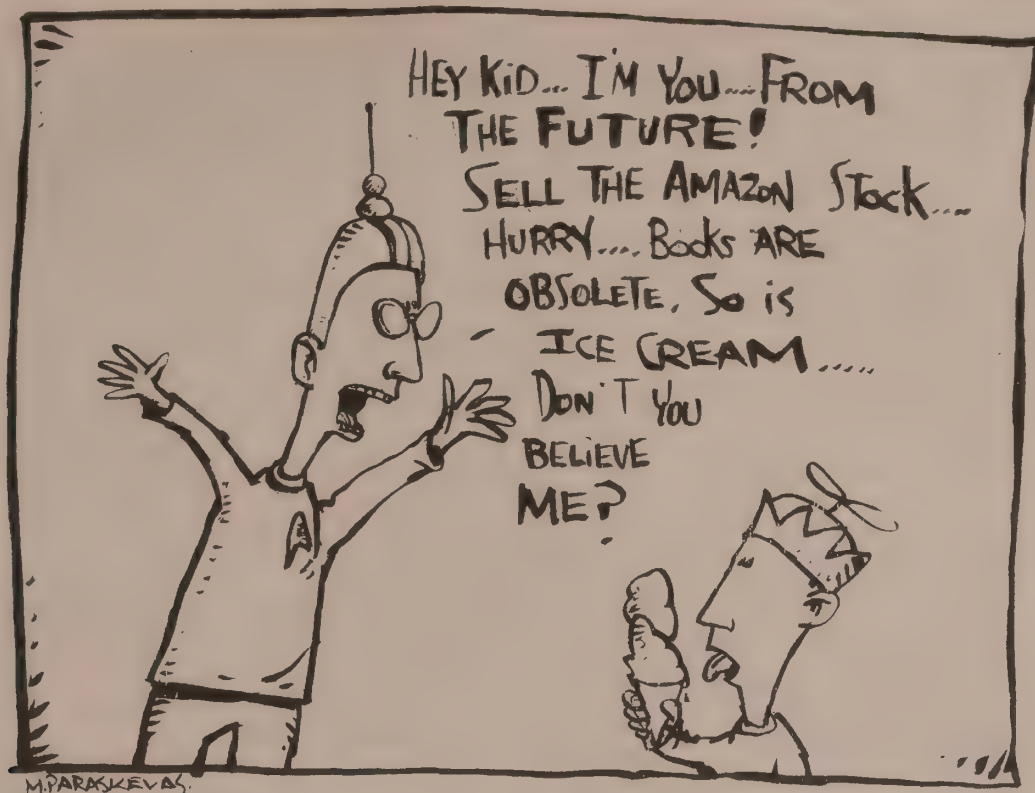 HEY KiD... I'M YOU.... FROM
THE FUTURE!
SELL THE AMAZON STock....
HURRY.... Books ARE
OBSOLETE. So is
ICE CREAM .....
DON'T YOU
BELiEVE
ME?
M.PARASKEVAS.